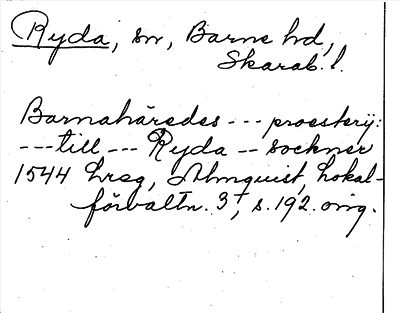 Ryda, sn, Barne hd,
Skarab. l.
Barnahäredes --- proesterij:
--- till --- Ryda -- sockner
1544 hreg, Almquist, Lokal-
förvaltn. 3, s. 192. orig.